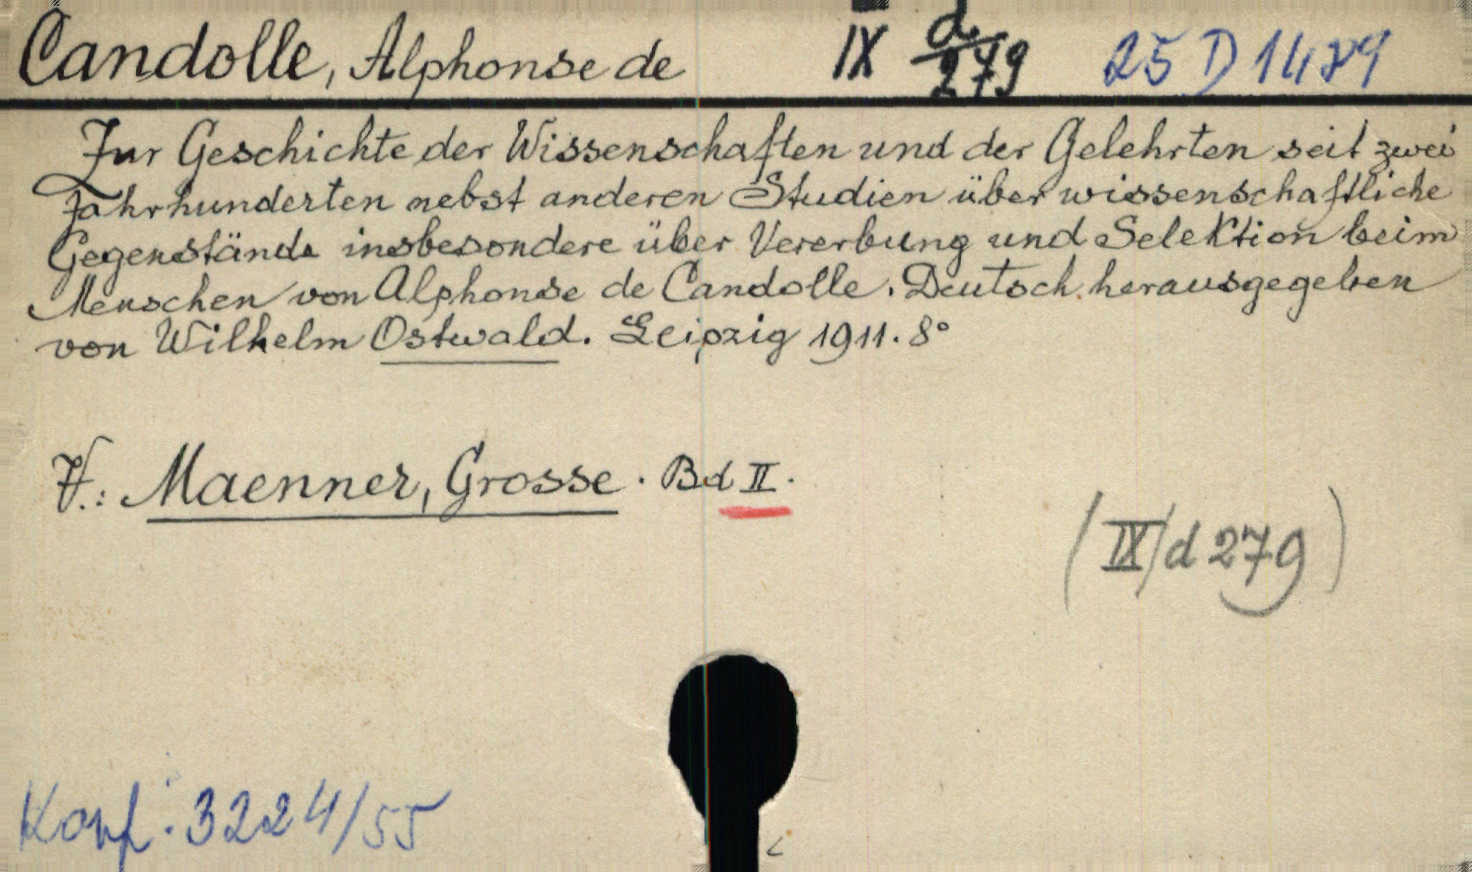 Candolle, Alphonse de IX d/279 25 D 1489
Zur Geschichte der Wissenschaften und der Gelehrten seit zwei
Jahrhunderten nebst anderen Studien über wissenschaftliche
Gegenstände insbesondere über Vererbung und Selektion beim
Menschen von Alphonse de Candolle. Deutsch herausgegeben
von Wilhelm Ostwald. Leipzig 1911. 8°
V.: Maenner, Grosse. Bd II.
(IX/d 279)
Konf: 3224/55